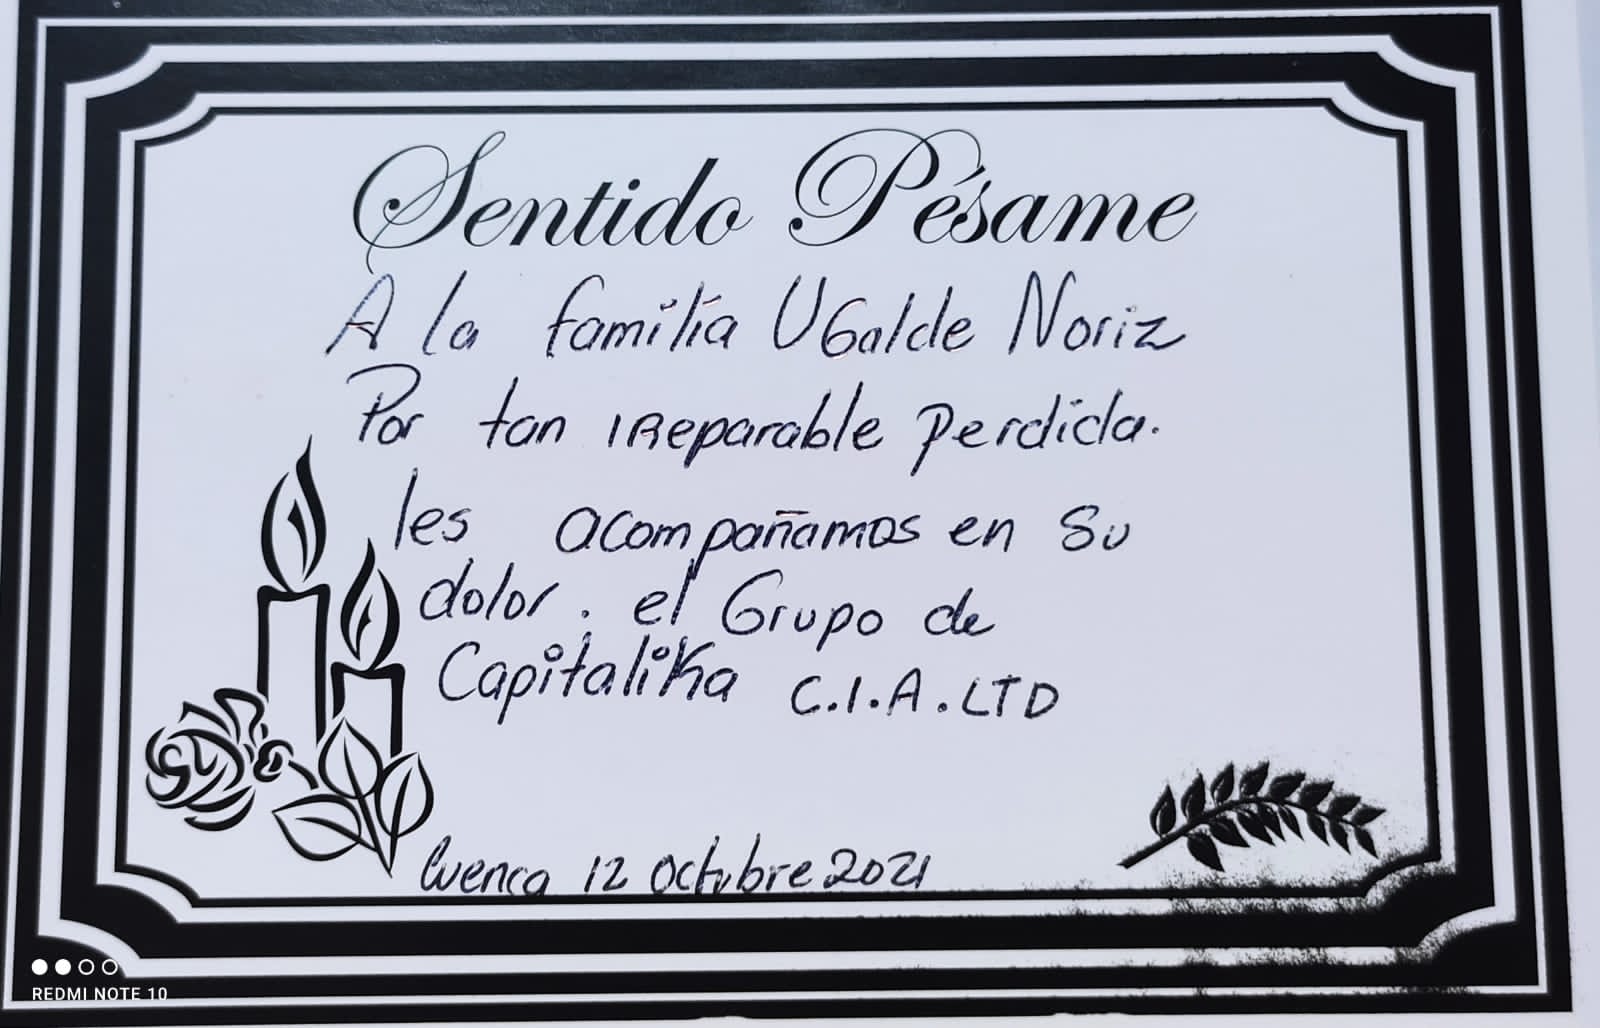 Sentido Pésame
A la familia UGalde Noriz
Por tan iReparable perdida.
les acompañamos en su
dolor. el Grupo de
Capitalika C.I.A. LTD
Cuenca 12 octubre 2021
REDMI NOTE 10